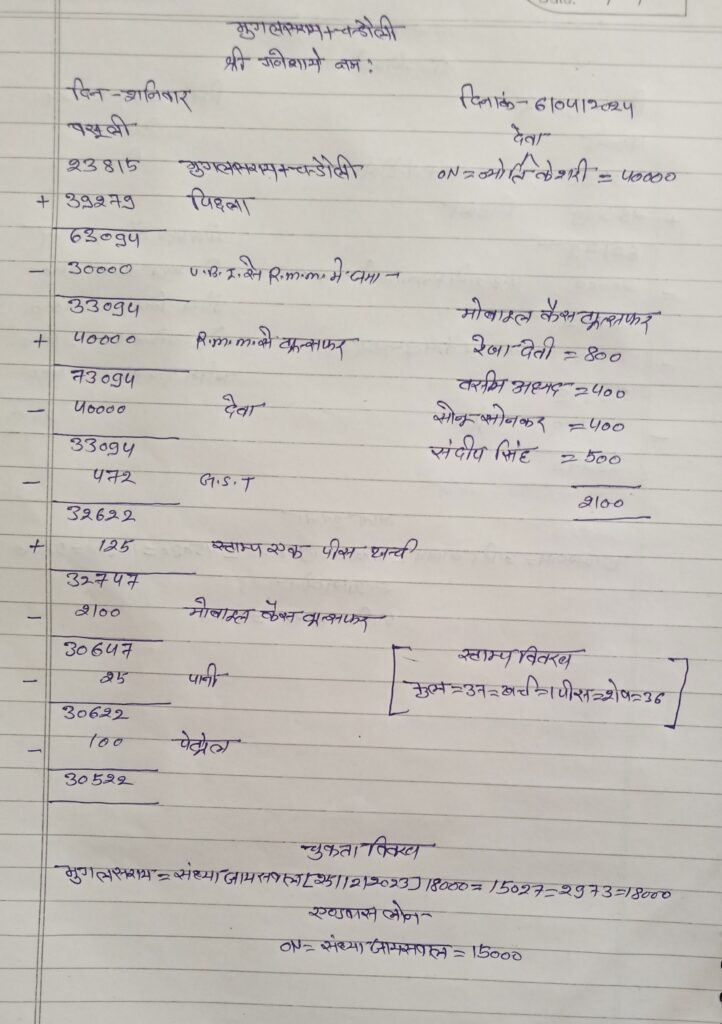 मुगलसराय + चन्दौली
श्री गनेशाये नमः
दिन - शनिवार
दिनांक - 6/04/2024
वसूली
देता
23815 मुगलसराय + चन्दौली
ON = ज्योति केशरी = 40000
+ 39279 पिछला
63094
- 30000 U.B.I. से R.m.m. मे जमा -
33094
मोबाइल कैस ट्रान्सफर
+ 40000 R.m.m. से ट्रान्सफर
रेखा देवी = 800
73094
वसीम अहमद = 400
- 40000 देता
सोनू सोनकर = 400
33094
संदीप सिंह = 500
- 472 G.S.T
2100
32622
+ 125 स्टाम्प एक पीस खर्ची
32747
- 2100 मोबाइल कैस ट्रान्सफर
30647
स्टाम्प विवरण
- 25 पानी
कुल = 37 = खर्च = 1 पीस = शेष = 36
30622
- 100 पेट्रोल
30522
चुकता विवरण
मुगलसराय = संध्या जायसवाल [25/12/2023] 18000 = 15027 = 2973 = 18000
एडवांस लोन -
ON = संध्या जायसवाल = 15000